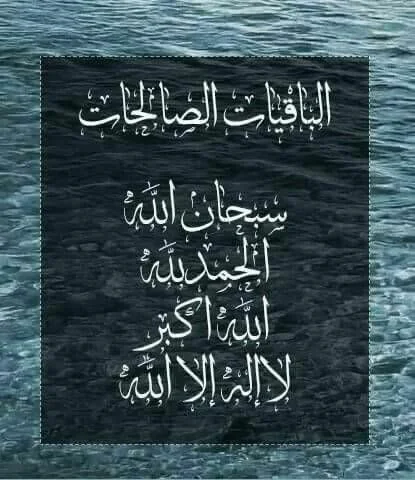 الباقيات الصالحات
سبحان الله
الحمدلله
الله اكبر
لا إله إلا الله